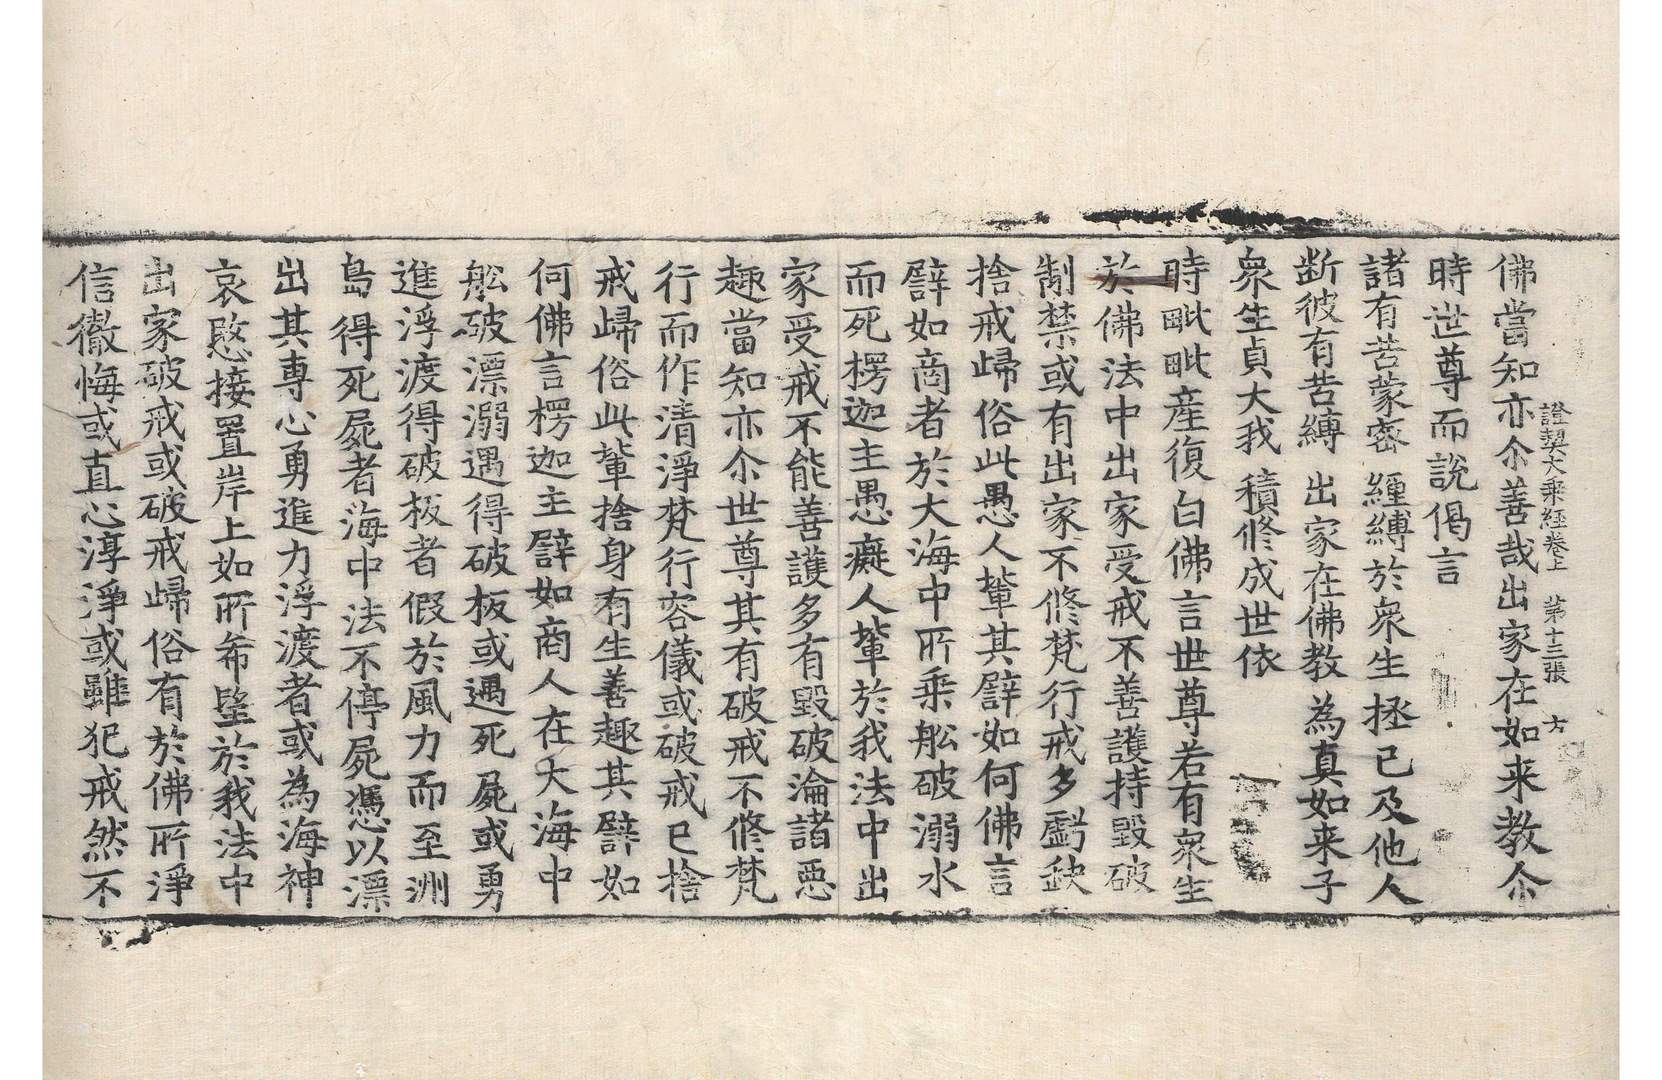 佛當知亦尒善哉出家在如来教尒
證契大乘經卷上　第十三張　方
時世尊而說偈言
諸有苦蒙密　纏縛於衆生　拯已及他人
斷彼有苦縛　出家在佛教　為真如来子
衆生貞大我　積修成世依
時毗毗産復白佛言世尊若有衆生
於佛法中出家受戒不善護持毀破
制禁或有出家不修梵行戒多虧缺
捨戒歸俗此愚人輩其譬如何佛言
譬如商者於大海中所乘舩破溺水
而死楞迦主愚癡人輩於我法中出
家受戒不能善護多有毀破淪諸惡
趣當知亦尒世尊其有破戒不修梵
行而作清淨梵行容儀或破戒已捨
戒歸俗此輩捨身有生善趣其譬如
何佛言楞迦主譬如商人在大海中
舩破漂溺遇得破板或遇死屍或勇
進浮渡得破板者假於風力而至洲
島得死屍者海中法不停屍憑以漂
出其専心勇進力浮渡者或為海神
哀愍接置岸上如所希望於我法中
出家破戒或破戒歸俗有於佛所淨
信徹悔或直心淳淨或雖犯戒然不